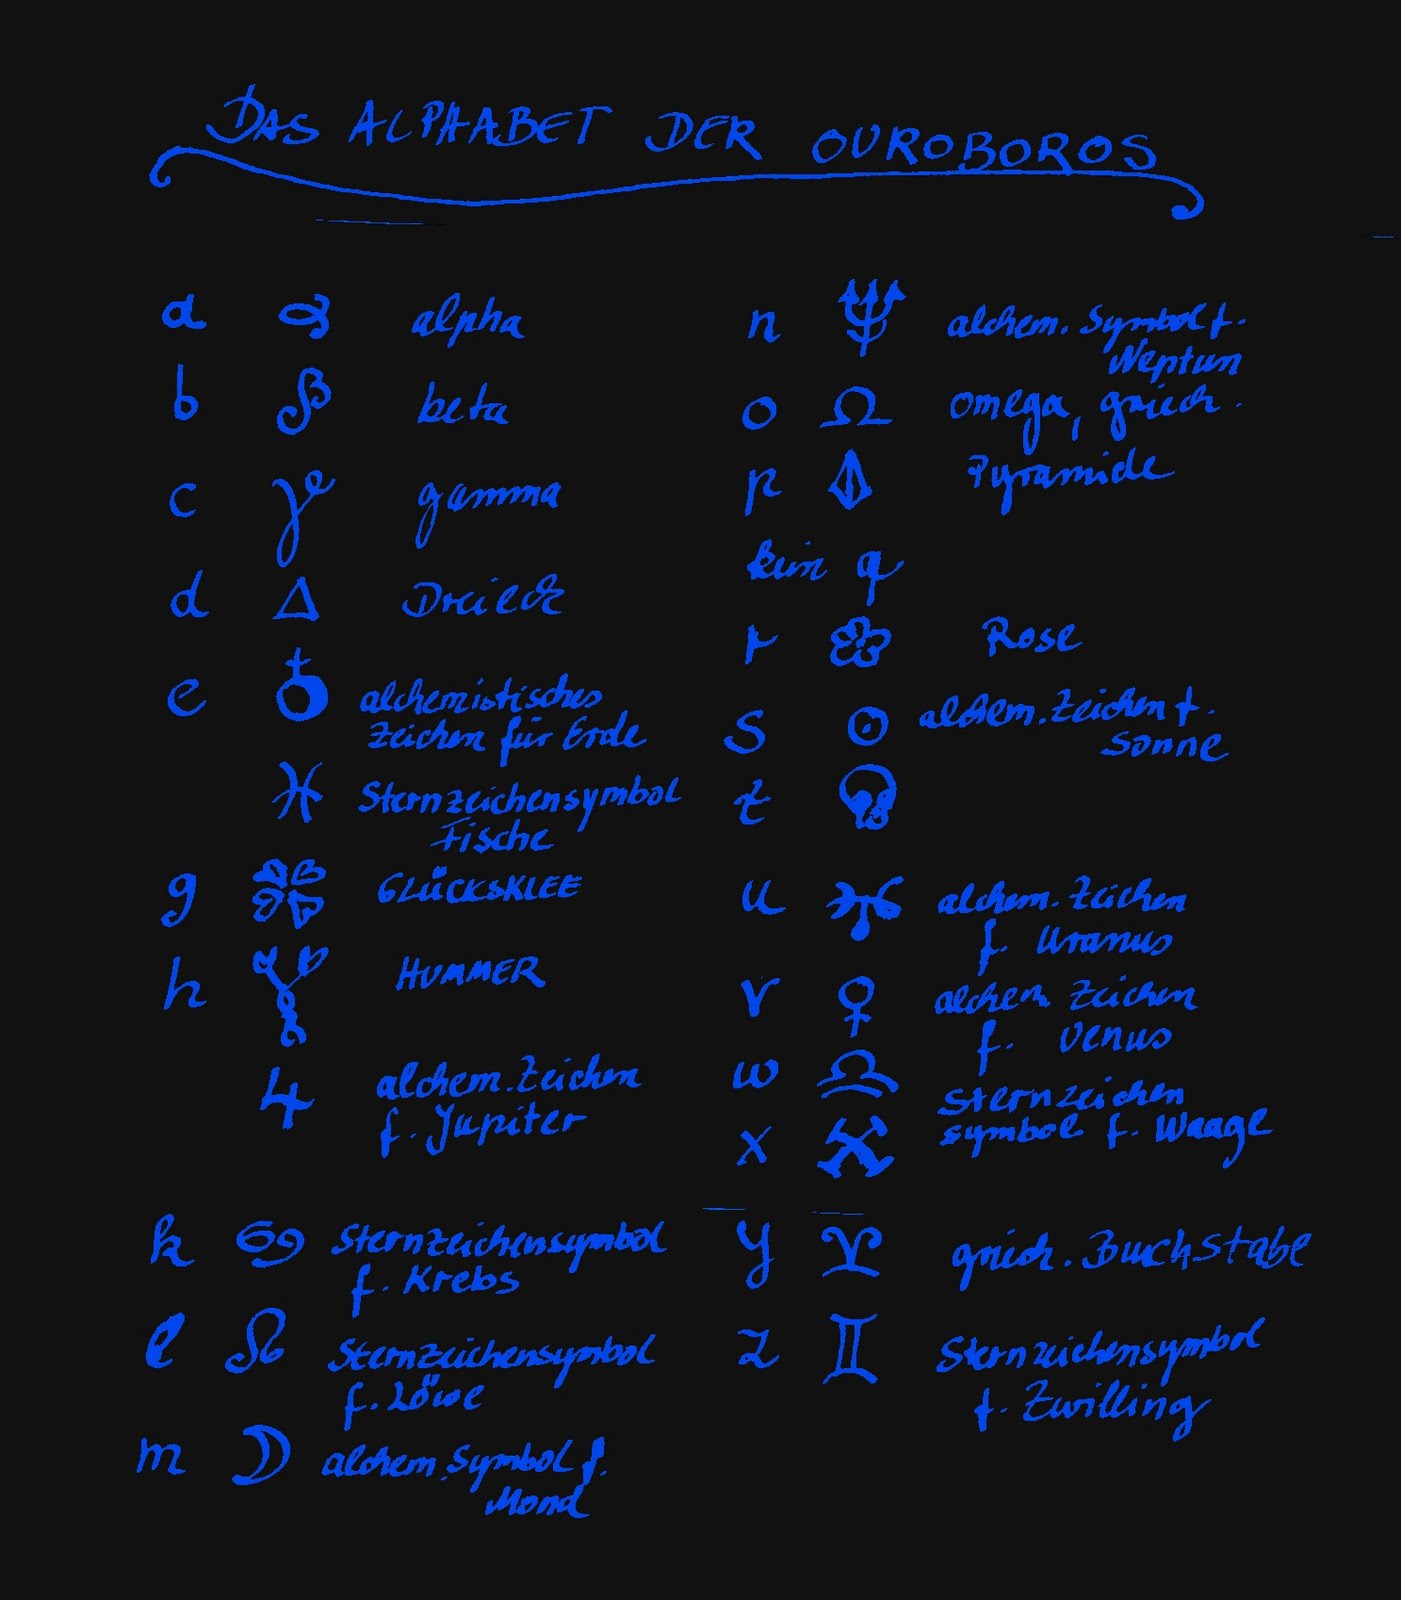 DAS ALPHABET DER OUROBOROS
a α alpha
b β beta
c γ gamma
d Δ Dreieck
e ♁ alchemistisches
Zeichen für Erde
♓ Sternzeichensymbol
Fische
g GLÜCKSKLEE
h HUMMER
♃ alchem. Zeichen
f. Jupiter
k ♋ Sternzeichensymbol
f. Krebs
l ♌ Sternzeichensymbol
f. Löwe
m ☽ alchem. Symbol f.
Mond
n ♆ alchem. Symbol f.
Neptun
o Ω omega, griech.
p Pyramide
kein q
r Rose
s ☉ alchem. Zeichen f.
Sonne
t
u alchem. Zeichen
f. Uranus
v ♀ alchem. Zeichen
f. Venus
w ♎ Sternzeichen
symbol f. Waage
x
y griech. Buchstabe
z ♊ Sternzeichensymbol
f. Zwilling